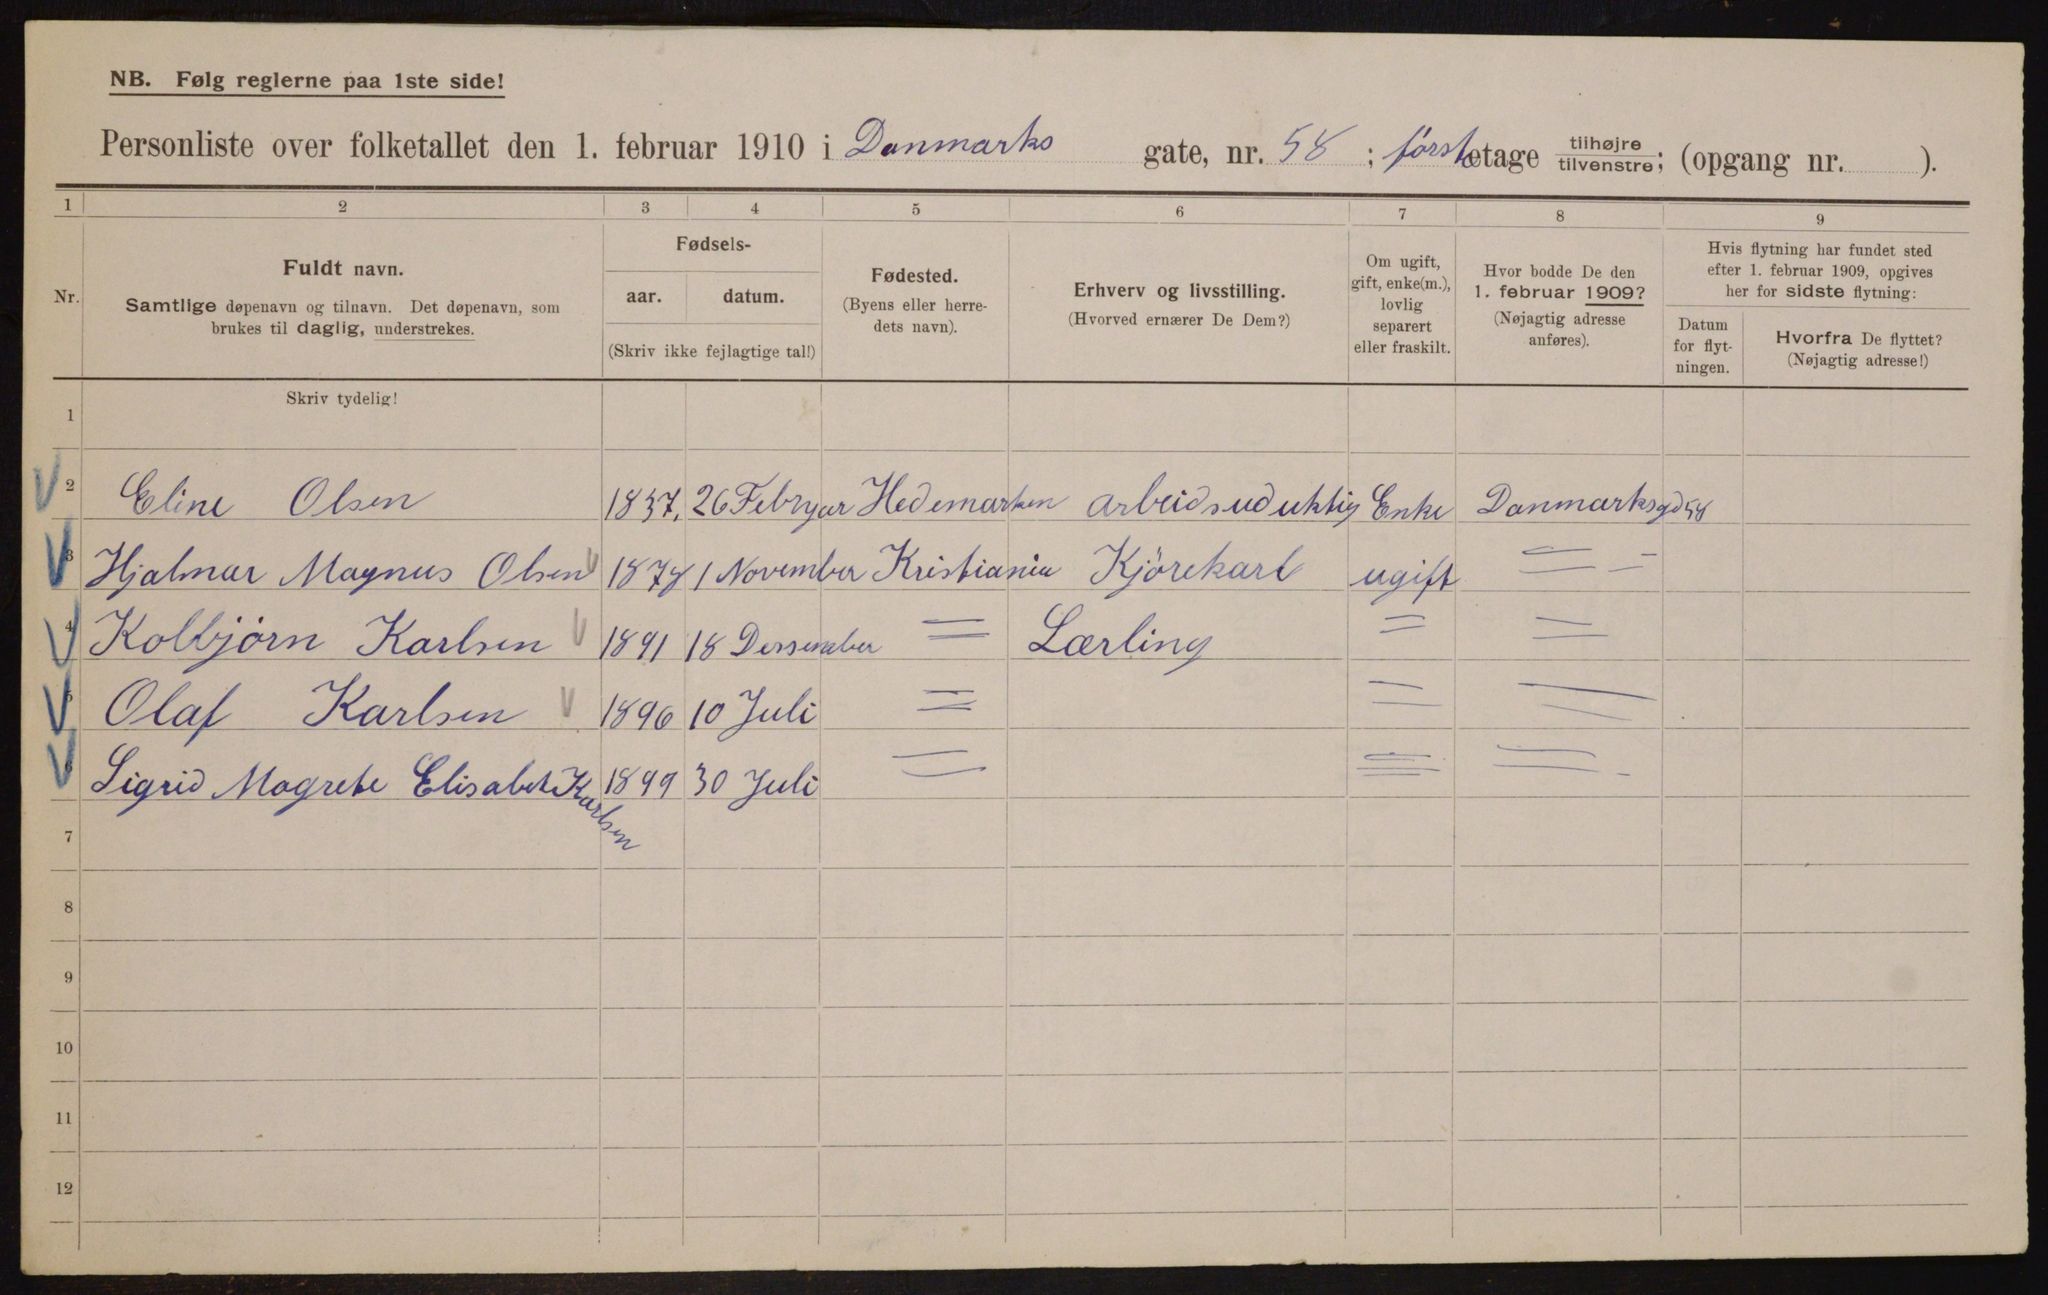 NB. Følg reglerne paa 1ste side!
Personliste over folketallet den 1. februar 1910 i Danmarks gate, nr. 58 ; første etage tilhøjre tilvenstre; (opgang nr. ).
1 2 3 4 5 6 7 8 9
Nr.
Fuldt navn.
Samtlige døpenavn og tilnavn. Det døpenavn, som
brukes til daglig, understrekes.
Fødsels-
aar. datum.
(Skriv ikke fejlagtige tal!)
Fødested.
(Byens eller herre-
dets navn).
Erhverv og livsstilling.
(Hvorved ernærer De Dem?)
Om ugift,
gift, enke(m.),
lovlig
separert
eller fraskilt.
Hvor bodde De den
1. februar 1909?
(Nøjagtig adresse
anføres).
Hvis flytning har fundet sted
efter 1. februar 1909, opgives
her for sidste flytning:
Datum
for flyt-
ningen.
Hvorfra De flyttet?
(Nøjagtig adresse!)
Skriv tydelig!
1
2 Eline Olsen 1837. 26 Februar Hedemarken arbeidsuduktig Enke Danmarksgd 58
3 Hjalmar Magnus Olsen 1878 1 November Kristiania Kjörekarl ugift = -
4 Kolbjörn Karlsen 1891 18 Dessember = Lærling = =
5 Olaf Karlsen 1896 10 Juli = = =
6 Sigrid Magrete Elisabet Karlsen 1899 30 Juli = = =
7
8
9
10
11
12